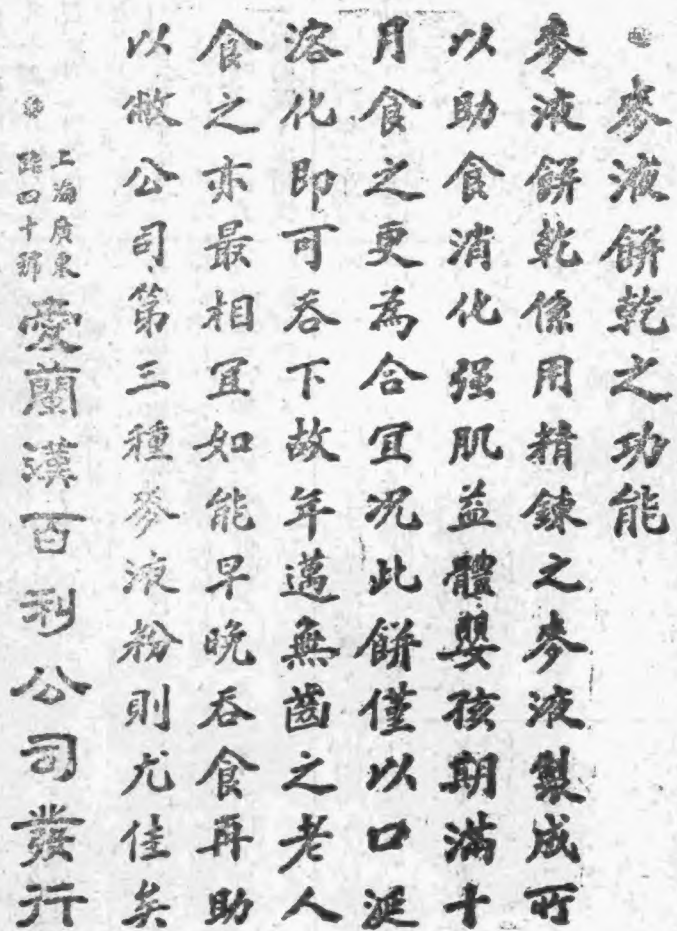 麥液餅乾之功能
麥液餅乾係用精鍊之麥液製成所
以助食消化强肌益體嬰孩期滿十
月食之更為合宜况此餅僅以口涎
溶化即可吞下故年邁無齒之老人
食之亦最相宜如能早晚吞食再助
以敝公司第三種麥液粉則尤佳矣
上海廣東
路四十號
愛蘭漢百利公司發行